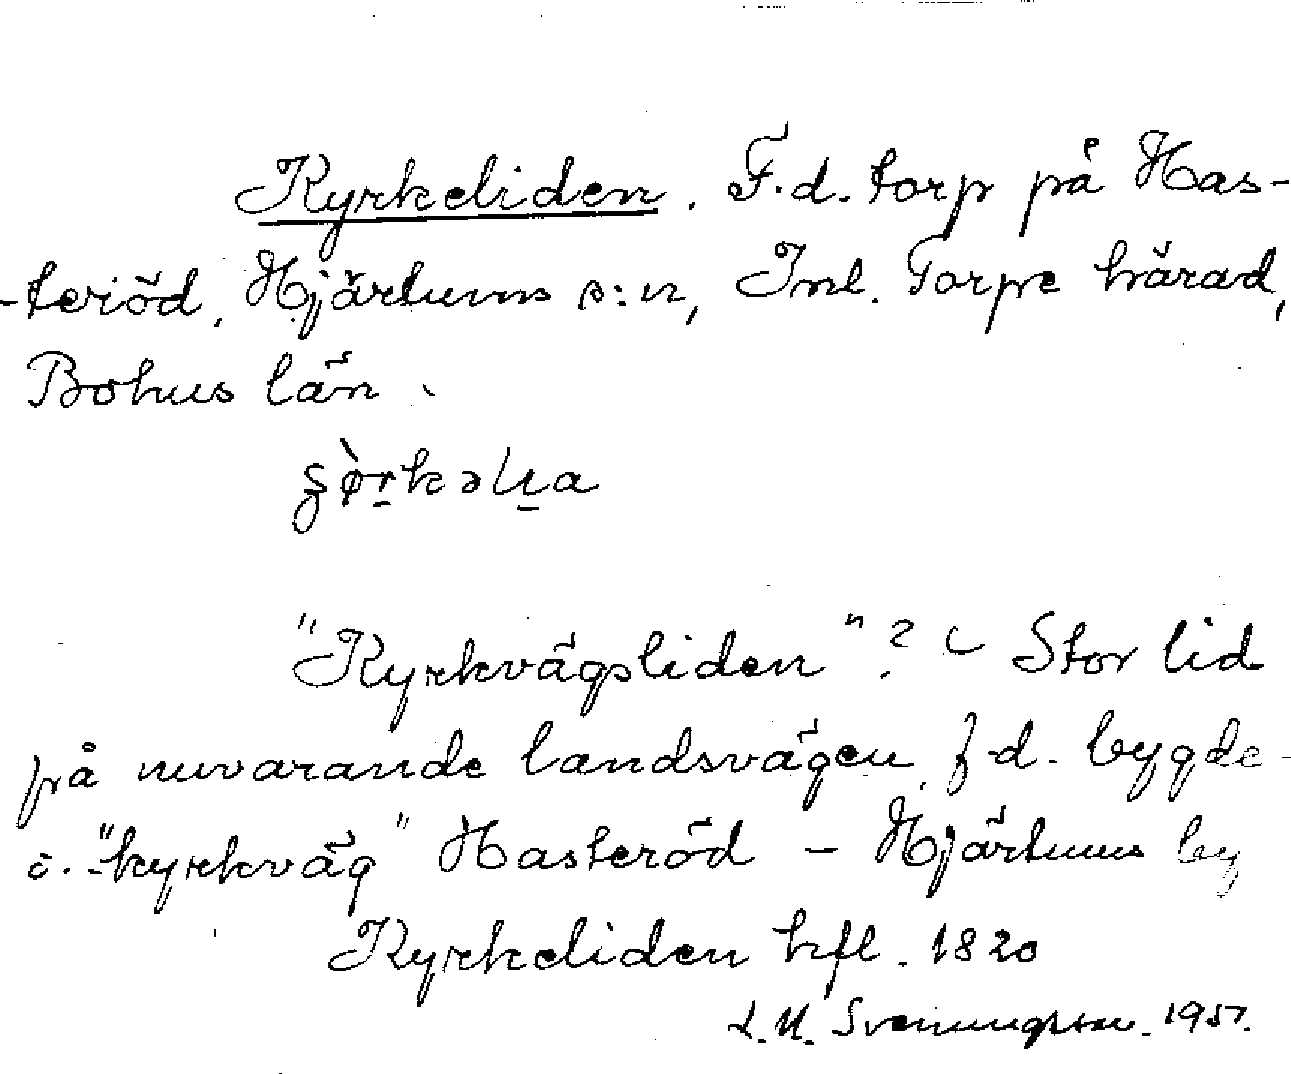 Kyrkeliden. F.d. torp på Has-
-teröd, Hjärtums s:n, Inl. Torpe härad,
Bohus län.
"Kyrkvägsliden"? Stor lid
på nuvarande landsvägen, f.d. bygde-
o. "kyrkväg" Hasteröd - Hjärtums by
Kyrkeliden hfl. 1820